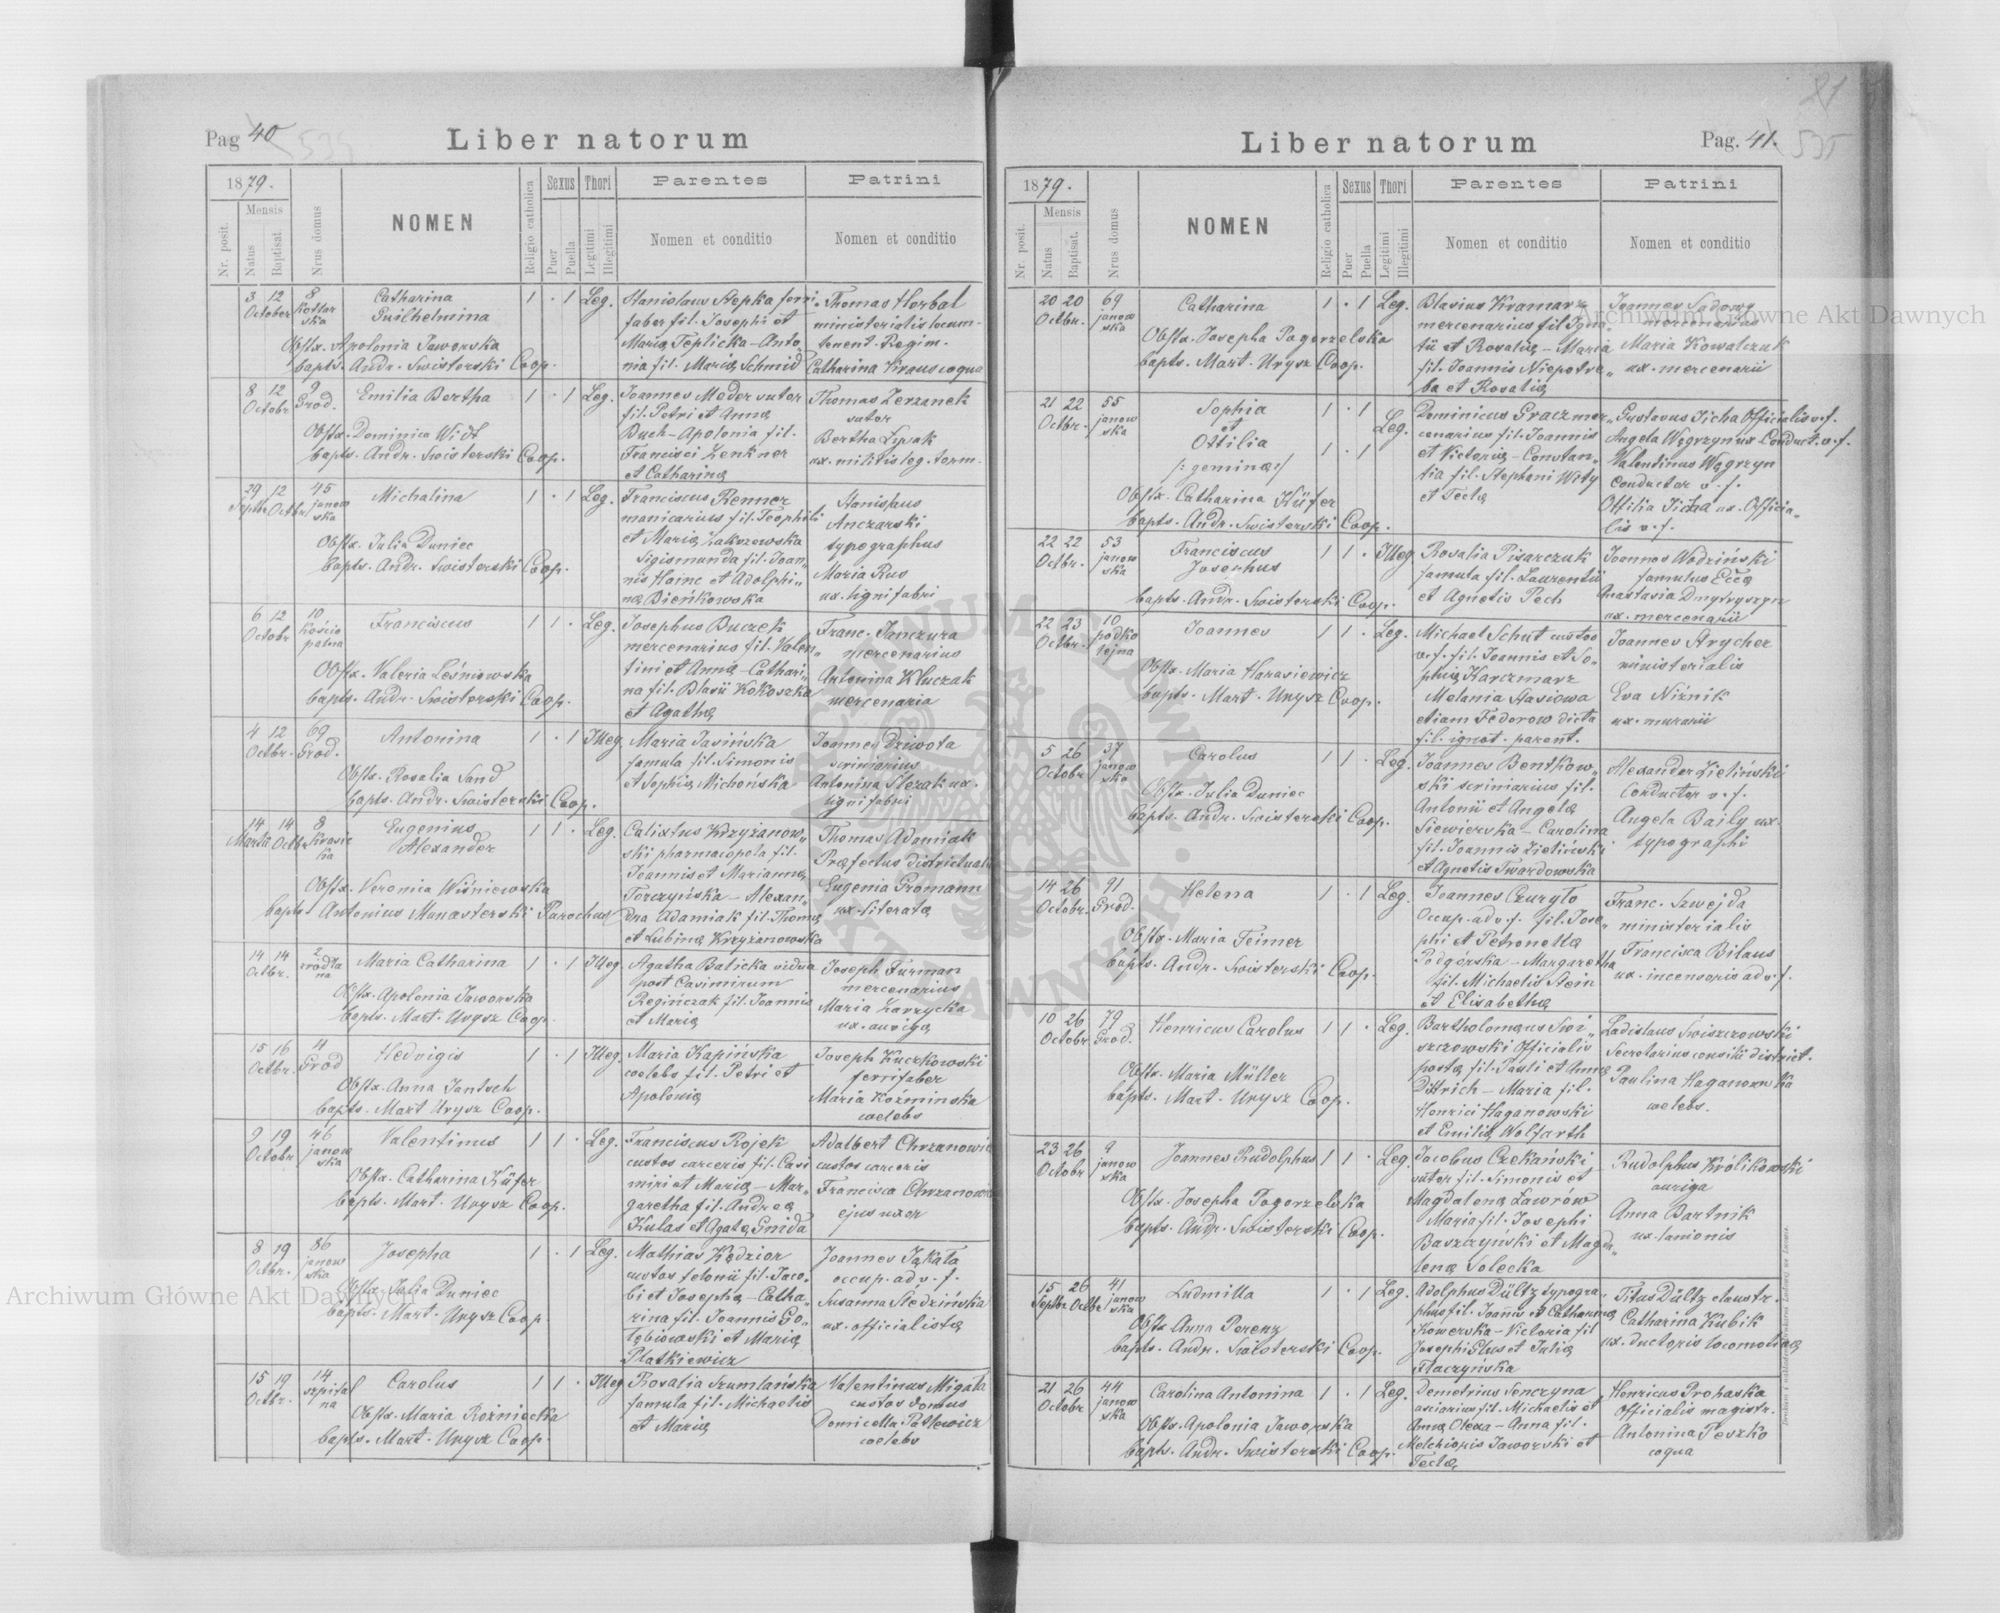 Pag 40
Liber natorum
1879.
Mensis
Nr. posit.
Natus
Baptisat.
Nrus domus
NOMEN
Religio catholica
Sexus
Puer
Puella
Thori
Legitimi
Illegitimi
Parentes
Nomen et conditio
Patrini
Nomen et conditio
3 12 8
October Kotlar
ska
Catharina
Guilhelmina
Obstx. Apolonia Jaworska
bapts. Andr. Swisterski Coop.
1 · 1 Leg.
Stanislaus Stepka ferri
faber fil. Josephi et
Mariæ Teplicka - Anto-
nia fil. Mariæ Schmid
Thomas Horbal
ministerialis locum-
tenent. Regim.
Catharina Kraus coqua
8 12 9
Octobr Grod.
Emilia Bertha
Obstx. Dominica Widt
bapts. Andr. Swisterski Coop.
1 · 1 Leg.
Joannes Meder sutor
fil. Petri et Annæ
Buch - Apolonia fil.
Francisci Zenkner
et Catharinæ
Thomas Zerzanek
sutor
Bertha Lysak
ux. militis leg. torm.
29 12 45
Septbr Octbr janow
ska
Michalina
Obstx. Julia Duniec
bapts. Andr. Swisterski Coop.
1 · 1 Leg.
Franciscus Renner
manicarius fil. Teophili
et Mariæ Zakrzewska
Sigismunda fil. Joan-
nis Haine et Adolphi-
næ Bieńkowska
Stanislaus
Anczarski
typographus
Maria Rus
ux. lignifabri
6 12 10
Octobr Kościo
palna
Franciscus
Obstx. Valeria Leśniowska
bapts. Andr. Swisterski Coop.
1 1 · Leg.
Josephus Buczek
mercenarius fil. Valen-
tini et Annæ - Cathari-
na fil. Blasii Kokoszka
et Agathæ
Franc. Janczura
mercenarius
Antonina Kluczak
mercenaria
4 12 69
Octbr. Grod.
Antonina
Obstx. Rosalia Sand
bapts. Andr. Swisterski Coop.
1 · 1 Illeg.
Maria Jasińska
famula fil. Simonis
et Sophiæ Michońska
Joannes Dziwota
scriniarius
Antonina Slezak ux.
lignifabri
14 14 8
Martii Octbr Krasic
ka
Eugenius
Alexander
Obstx. Veronica Wiśniewska
bapts. Antonius Manasterski Parochus
1 1 · Leg.
Calixtus Krzyżanow-
ski pharmacopola fil.
Joannis et Mariannæ
Torczyńska - Alexan-
dra Adamiak fil. Thomæ
et Lubinæ Krzyżanowska
Thomas Adamiak
Præfectus districtualis
Eugenia Gromann
ux. literatæ
14 14 2
Octbr. zrodla
na
Maria Catharina
Obstx. Apolonia Jaworska
bapts. Mart. Urysz Coop.
1 · 1 Illeg.
Agatha Baticka vidua
post Casimirum
Regińczak fil. Joannis
et Mariæ
Joseph Furman
mercenarius
Maria Zarzycka
ux. aurigæ
15 16 4
Octbr. Grod
Hedvigis
Obstx. Anna Jantsch
bapts. Mart Urysz Coop.
1 · 1 Illeg.
Maria Kapińska
coelebs fil. Petri et
Apoloniæ
Joseph Kuczkowski
ferrifaber
Maria Kozminska
coelebs
9 19 46
Octobr janow
ska
Valentinus
Obstx. Catharina Küfer
bapts. Mart. Urysz Coop.
1 1 · Leg.
Franciscus Rojek
custos carceris fil. Casi
miri et Mariæ - Mar-
garetha fil. Andreæ
Kulas et Agatæ Gnida
Adalbert Chrzanowic
custos carceris
Francisca Chrzanow
ejus uxor
8 19 86
Octbr. janow
ska
Josepha
Obstx. Julia Duniec
bapts. Mart. Urysz Coop.
1 · 1 Leg.
Mathias Kędzior
custos telonii fil. Jaco-
bi et Josephæ - Catha-
rina fil. Joannis Go-
łębiowski et Mariæ
Platkiewicz
Joannes Jąkała
occup. ad v. f.
Susanna Sledzińska
ux. officialistæ
15 19 14
Octbr. szpital
na
Carolus
Obstx. Maria Rożniecka
bapts. Mart. Urysz Coop.
1 1 · Illeg
Rosalia Szumlańska
famula fil. Michaelis
et Mariæ
Valentinus Migała
custos domus
Domicella Patlewicz
coelebs
81
Liber natorum
Pag. 41.
535
1879.
Mensis
Nr. posit.
Natus
Baptisat.
Nrus domus
NOMEN
Religio catholica
Sexus
Puer
Puella
Thori
Legitimi
Illegitimi
Parentes
Nomen et conditio
Patrini
Nomen et conditio
20 20 69
Octbr. janow
ska
Catharina
Obstx. Josepha Pogorzelska
bapts. Mart. Urysz Coop.
1 · 1 Leg.
Blasius Kramarz
mercenarius fil. Igna-
tii et Rosaliæ - Maria
fil. Joannis Niepotrze-
ba et Rosaliæ
Joannes Sadowy
mercenarius
Maria Kowalczuk
ux. mercenarii
21 22 55
Octbr. janow
ska
Sophia
et
Ottilia
/: geminæ :/
Obstx. Catharina Küfer
bapts. Andr. Swisterski Coop.
1 · 1
Leg.
1 · 1
Dominicus Gracz mer-
cenarius fil. Joannis
et Victoriæ - Constan-
tia fil. Stephani Wity
et Teclæ
Gustavus Jicha Officialis v. f.
Angela Węgrzyn ux. Conduct. v. f.
Valentinus Węgrzyn
Conductor v. f.
Ottilia Jicha ux. Officia-
lis v. f.
22 22 53
Octbr. janow
ska
Franciscus
Josephus
bapts. Andr. Swisterski Coop.
1 1 · Illeg
Rosalia Pisarczuk
famula fil. Laurentii
et Agnetis Pech
Joannes Wodziński
famulus Eccæ
Anastasia Dmytryszyn
ux. mercenarii
22 23 10
Octbr. podko
łejna
Joannes
Obstx. Maria Harasiewicz
bapts. Mart. Urysz Coop.
1 1 · Leg.
Michael Schut custos
v. f. fil. Joannis et So-
phiæ Karczmarz
Melania Stasiowa
etiam Fedorow dicta
fil. ignot. parent.
Joannes Arycher
ministerialis
Eva Niżnik
ux. murarii
5 26 37
Octobr janow
ska
Carolus
Obstx. Julia Duniec
bapts. Andr. Swisterski Coop.
1 1 · Leg.
Joannes Bentkow-
ski scriniarius fil.
Antonii et Angelæ
Siewierska - Carolina
fil. Joannis Zieliński
et Agnetis Twardowska
Alexander Zieliński
Conductor v. f.
Angela Baily ux.
typographi
14 26 91
Octobr. Grod.
Helena
Obstx. Maria Feimer
bapts. Andr. Swisterski Coop.
1 · 1 Leg.
Joannes Czuryło
Occup. ad v. f. fil. Jose-
phi et Petronellæ
Podgórska - Margaretha
fil. Michaelis Stein
et Elisabethæ
Franc. Szwejda
ministerialis
Francisca Bilaus
ux. incensoris ad v. f.
10 26 79
Octobr Grod.
Henricus Carolus
Obstx. Maria Müller
bapts. Mart. Urysz Coop.
1 1 · Leg.
Bartholomæus Swi-
szczowski Officialis
postæ fil. Pauli et Annæ
Dittrich - Maria fil.
Henrici Haganowski
et Emiliæ Wolfarth
Ladislaus Swiszczowski
Secretarius consilii district.
Paulina Haganowska
coelebs.
23 26 9
Octobr janow
ska
Joannes Rudolphus
Obstx. Josepha Pogorzelska
bapts. Andr. Swisterski Coop.
1 1 · Leg
Jacobus Czekański
sutor fil. Simonis et
Magdalenæ Ławrów
Maria fil. Josephi
Baszczyński et Magda-
lenæ Solecka
Rudolphus Królikowski
auriga
Anna Bartnik
ux. lanionis
15 26 41
Septbr Octbr janow
ska
Ludmilla
Obstx Anna Perenz
bapts. Andr. Swisterski Coop.
1 · 1 Leg.
Adolphus Dültz typogra-
phus fil. Joannis et Catharinæ
Kowerska - Victoria fil
Josephi Glus et Juliæ
Tlaczyńska
Titus Dültz claustr.
Catharina Kubik
ux. ductoris locomotivæ
21 26 44
Octobr janow
ska
Carolina Antonina
Obstx. Apolonia Jaworska
bapts. Andr. Swisterski Coop.
1 · 1 Leg.
Demetrius Senczyna
asciarius fil. Michaelis et
Annæ Olexa - Anna fil.
Melchioris Jaworski et
Teclæ
Henricus Prohaska
Officialis magistr.
Antonina Peszko
coqua
Archiwum Główne Akt Dawnych
Archiwum Główne Akt Dawnych
ARCHIWUM GŁÓWNE AKT DAWNYCH